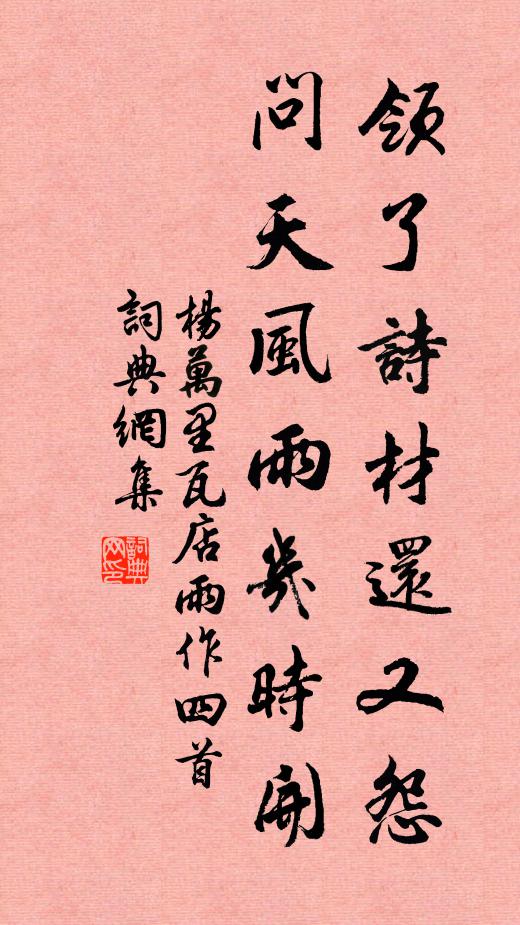 領了詩材還又怨
問天風雨幾時開
楊萬里瓦店雨作四首
詞典網集
詞典网印